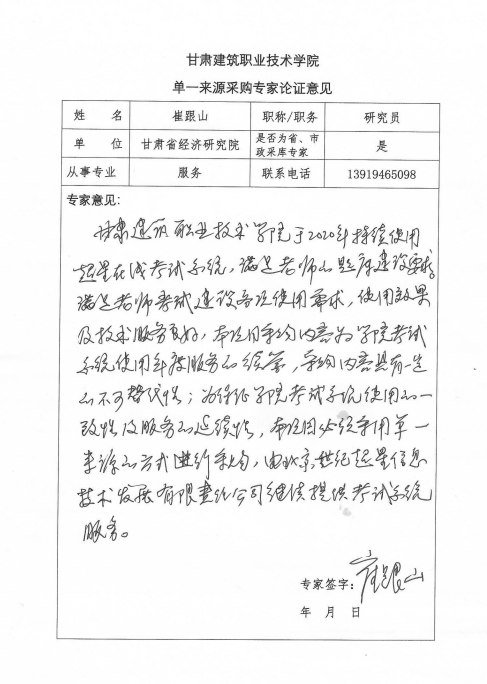 甘肃建筑职业技术学院
单一来源采购专家论证意见
姓 名 崔跟山 职称/职务 研究员
单 位 甘肃省经济研究院 是否为省、市政采库专家 是
从事专业 服务 联系电话 13919465098
专家意见:
甘肃建筑职业技术学院于2020年持续使用
超星在线考试系统,满足老师的题库建设要求。
满足老师考试建设各项使用需求,使用效果
及技术服务良好,本项目采购内容为学院考试
系统使用年度服务的续签,采购内容具有一定
的不可替代性;为保证学院考试系统使用的一
致性及服务的延续性,本项目必须采用单一
来源的方式进行采购,由北京世纪超星信息
技术发展有限责任公司继续提供考试系统
服务。
专家签字: 崔跟山
年 月 日